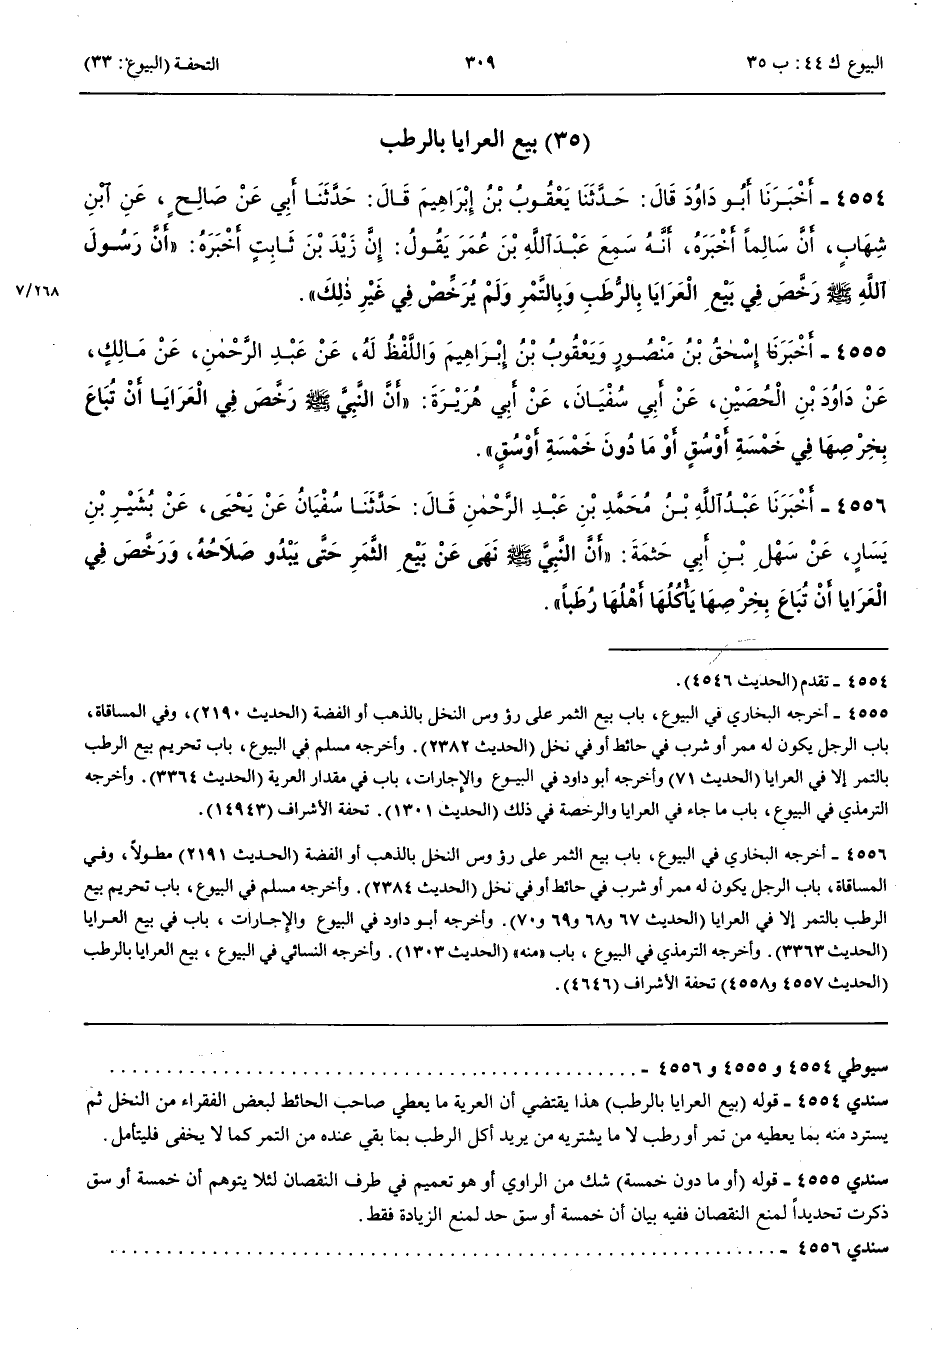 البيوع ك ٤٤: ب ٣٥
٣٠٩
التحفة (البيوع: ٣٣)
(٣٥) بيع العرايا بالرطب
٤٥٥٤ - أَخْبَرَنَا أَبُو دَاوُدَ قَالَ: حَدَّثَنَا يَعْقُوبُ بْنُ إِبْرَاهِيمَ قَالَ: حَدَّثَنَا أَبِي عَنْ صَالِحٍ، عَنِ ٱبْنِ
شِهَابٍ، أَنَّ سَالِماً أَخْبَرَهُ، أَنَّهُ سَمِعَ عَبْدَاللَّهِ بْنَ عُمَرَ يَقُولُ: إِنَّ زَيْدَ بْنَ ثَابِتٍ أَخْبَرَهُ: «أَنَّ رَسُولَ
ٱللَّهِ ﷺ رَخَّصَ فِي بَيْعِ الْعَرَايَا بِالرُّطَبِ وَبِالتَّمْرِ وَلَمْ يُرَخِّصْ فِي غَيْرِ ذٰلِكَ».
٧/٢٦٨
٤٥٥٥ - أَخْبَرَنَا إِسْحٰقُ بْنُ مَنْصُورٍ وَيَعْقُوبُ بْنُ إِبْرَاهِيمَ وَاللَّفْظُ لَهُ، عَنْ عَبْدِ الرَّحْمٰنِ، عَنْ مَالِكٍ،
عَنْ دَاوُدَ بْنِ الْحُصَيْنِ، عَنْ أَبِي سُفْيَانَ، عَنْ أَبِي هُرَيْرَةَ: «أَنَّ النَّبِيَّ ﷺ رَخَّصَ فِي الْعَرَايَا أَنْ تُبَاعَ
بِخِرْصِهَا فِي خَمْسَةِ أَوْسُقٍ أَوْ مَا دُونَ خَمْسَةِ أَوْسُقٍ».
٤٥٥٦ - أَخْبَرَنَا عَبْدُٱللَّهِ بْنُ مُحَمَّدِ بْنِ عَبْدِ الرَّحْمٰنِ قَالَ: حَدَّثَنَا سُفْيَانُ عَنْ يَحْيَى، عَنْ بُشَيْرِ بْنِ
يَسَارٍ، عَنْ سَهْلِ بْنِ أَبِي حَثْمَةَ: «أَنَّ النَّبِيَّ ﷺ نَهَى عَنْ بَيْعِ الثَّمَرِ حَتَّى يَبْدُو صَلَاحُهُ، وَرَخَّصَ فِي
الْعَرَايا أَنْ تُبَاعَ بِخِرْصِهَا يَأْكُلُهَا أَهْلُهَا رُطَباً».
٤٥٥٤ - تقدم (الحديث ٤٥٤٦).
٤٥٥٥ - أخرجه البخاري في البيوع، باب بيع الثمر على رؤوس النخل بالذهب أو الفضة (الحديث ٢١٩٠)، وفي المساقاة،
باب الرجل يكون له ممر أو شرب في حائط أو في نخل (الحديث ٢٣٨٢). وأخرجه مسلم في البيوع، باب تحريم بيع الرطب
بالتمر إلا في العرايا (الحديث ٧١) وأخرجه أبو داود في البيوع والإجارات، باب في مقدار العرية (الحديث ٣٣٦٤). وأخرجه
الترمذي في البيوع، باب ما جاء في العرايا والرخصة في ذلك (الحديث ١٣٠١). تحفة الأشراف (١٤٩٤٣).
٤٥٥٦ - أخرجه البخاري في البيوع، باب بيع الثمر على رؤوس النخل بالذهب أو الفضة (الحديث ٢١٩١) مطولاً، وفي
المساقاة، باب الرجل يكون له ممر أو شرب في حائط أو في نخل (الحديث ٢٣٨٤). وأخرجه مسلم في البيوع، باب تحريم بيع
الرطب بالتمر إلا في العرايا (الحديث ٦٧ و٦٨ و٦٩ و٧٠). وأخرجه أبو داود في البيوع والإجارات، باب في بيع العرايا
(الحديث ٣٣٦٣). وأخرجه الترمذي في البيوع، باب «منه» (الحديث ١٣٠٣). وأخرجه النسائي في البيوع، بيع العرايا بالرطب
(الحديث ٤٥٥٧ و٤٥٥٨) تحفة الأشراف (٤٦٤٦).
سيوطي ٤٥٥٤ و ٤٥٥٥ و ٤٥٥٦ - ..............................................
سندي ٤٥٥٤ - قوله (بيع العرايا بالرطب) هذا يقتضي أن العرية ما يعطي صاحب الحائط لبعض الفقراء من النخل ثم
يسترد منه بما يعطيه من تمر أو رطب لا ما يشتريه من يريد أكل الرطب بما بقي عنده من التمر كما لا يخفى فليتأمل.
سندي ٤٥٥٥ - قوله (أو ما دون خمسة) شك من الراوي أو هو تعميم في طرف النقصان لئلا يتوهم أن خمسة أوسق
ذكرت تحديداً لمنع النقصان ففيه بيان أن خمسة أوسق حد لمنع الزيادة فقط.
سندي ٤٥٥٦ - ..........................................................